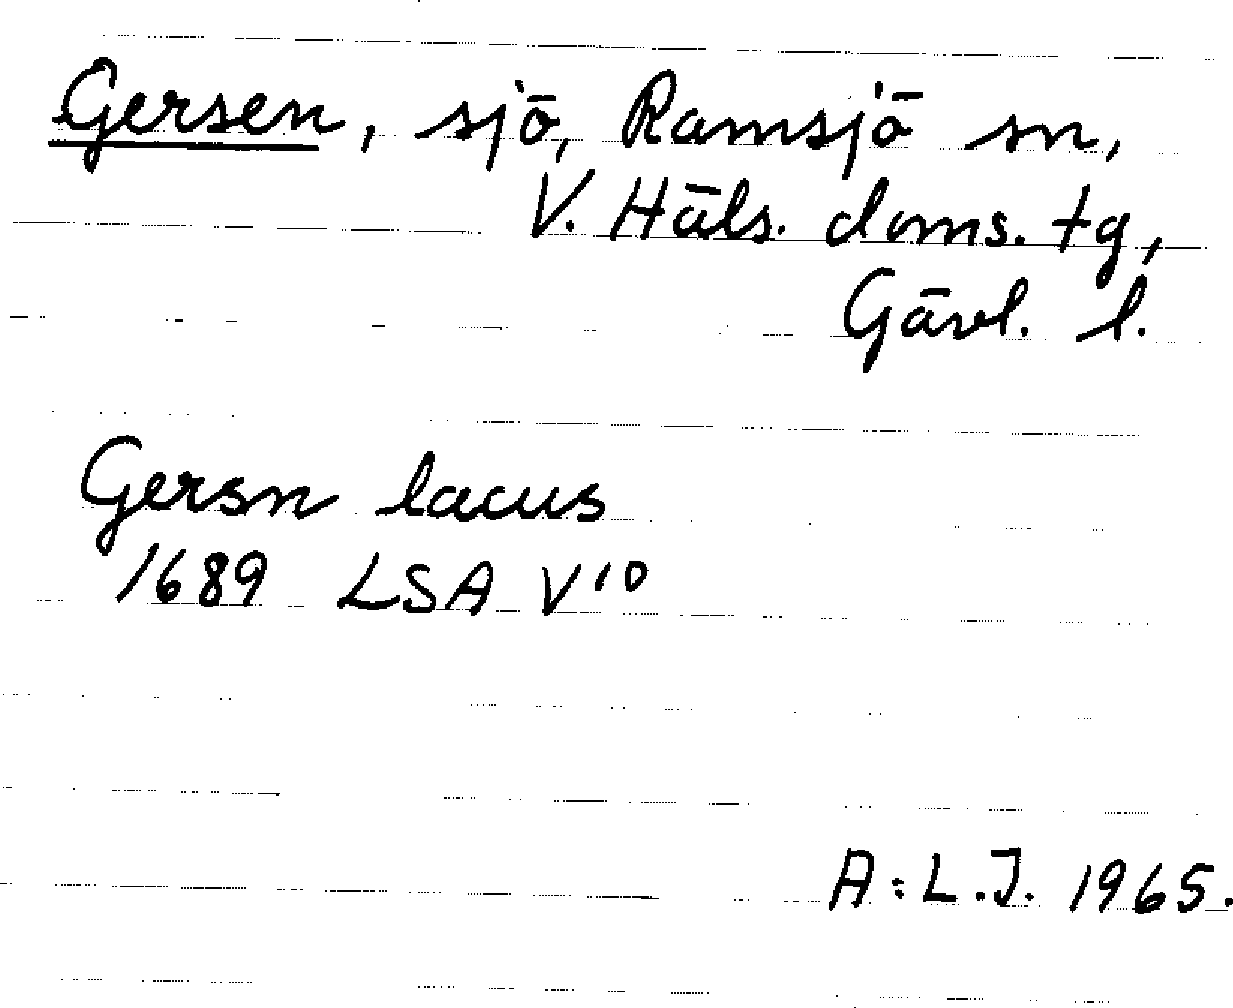 Gersen, sjö, Ramsjö sn,
V. Häls. doms. tg,
Gävl. l.
Gersn lacus
1689 LSA V10
A:L.J. 1965.